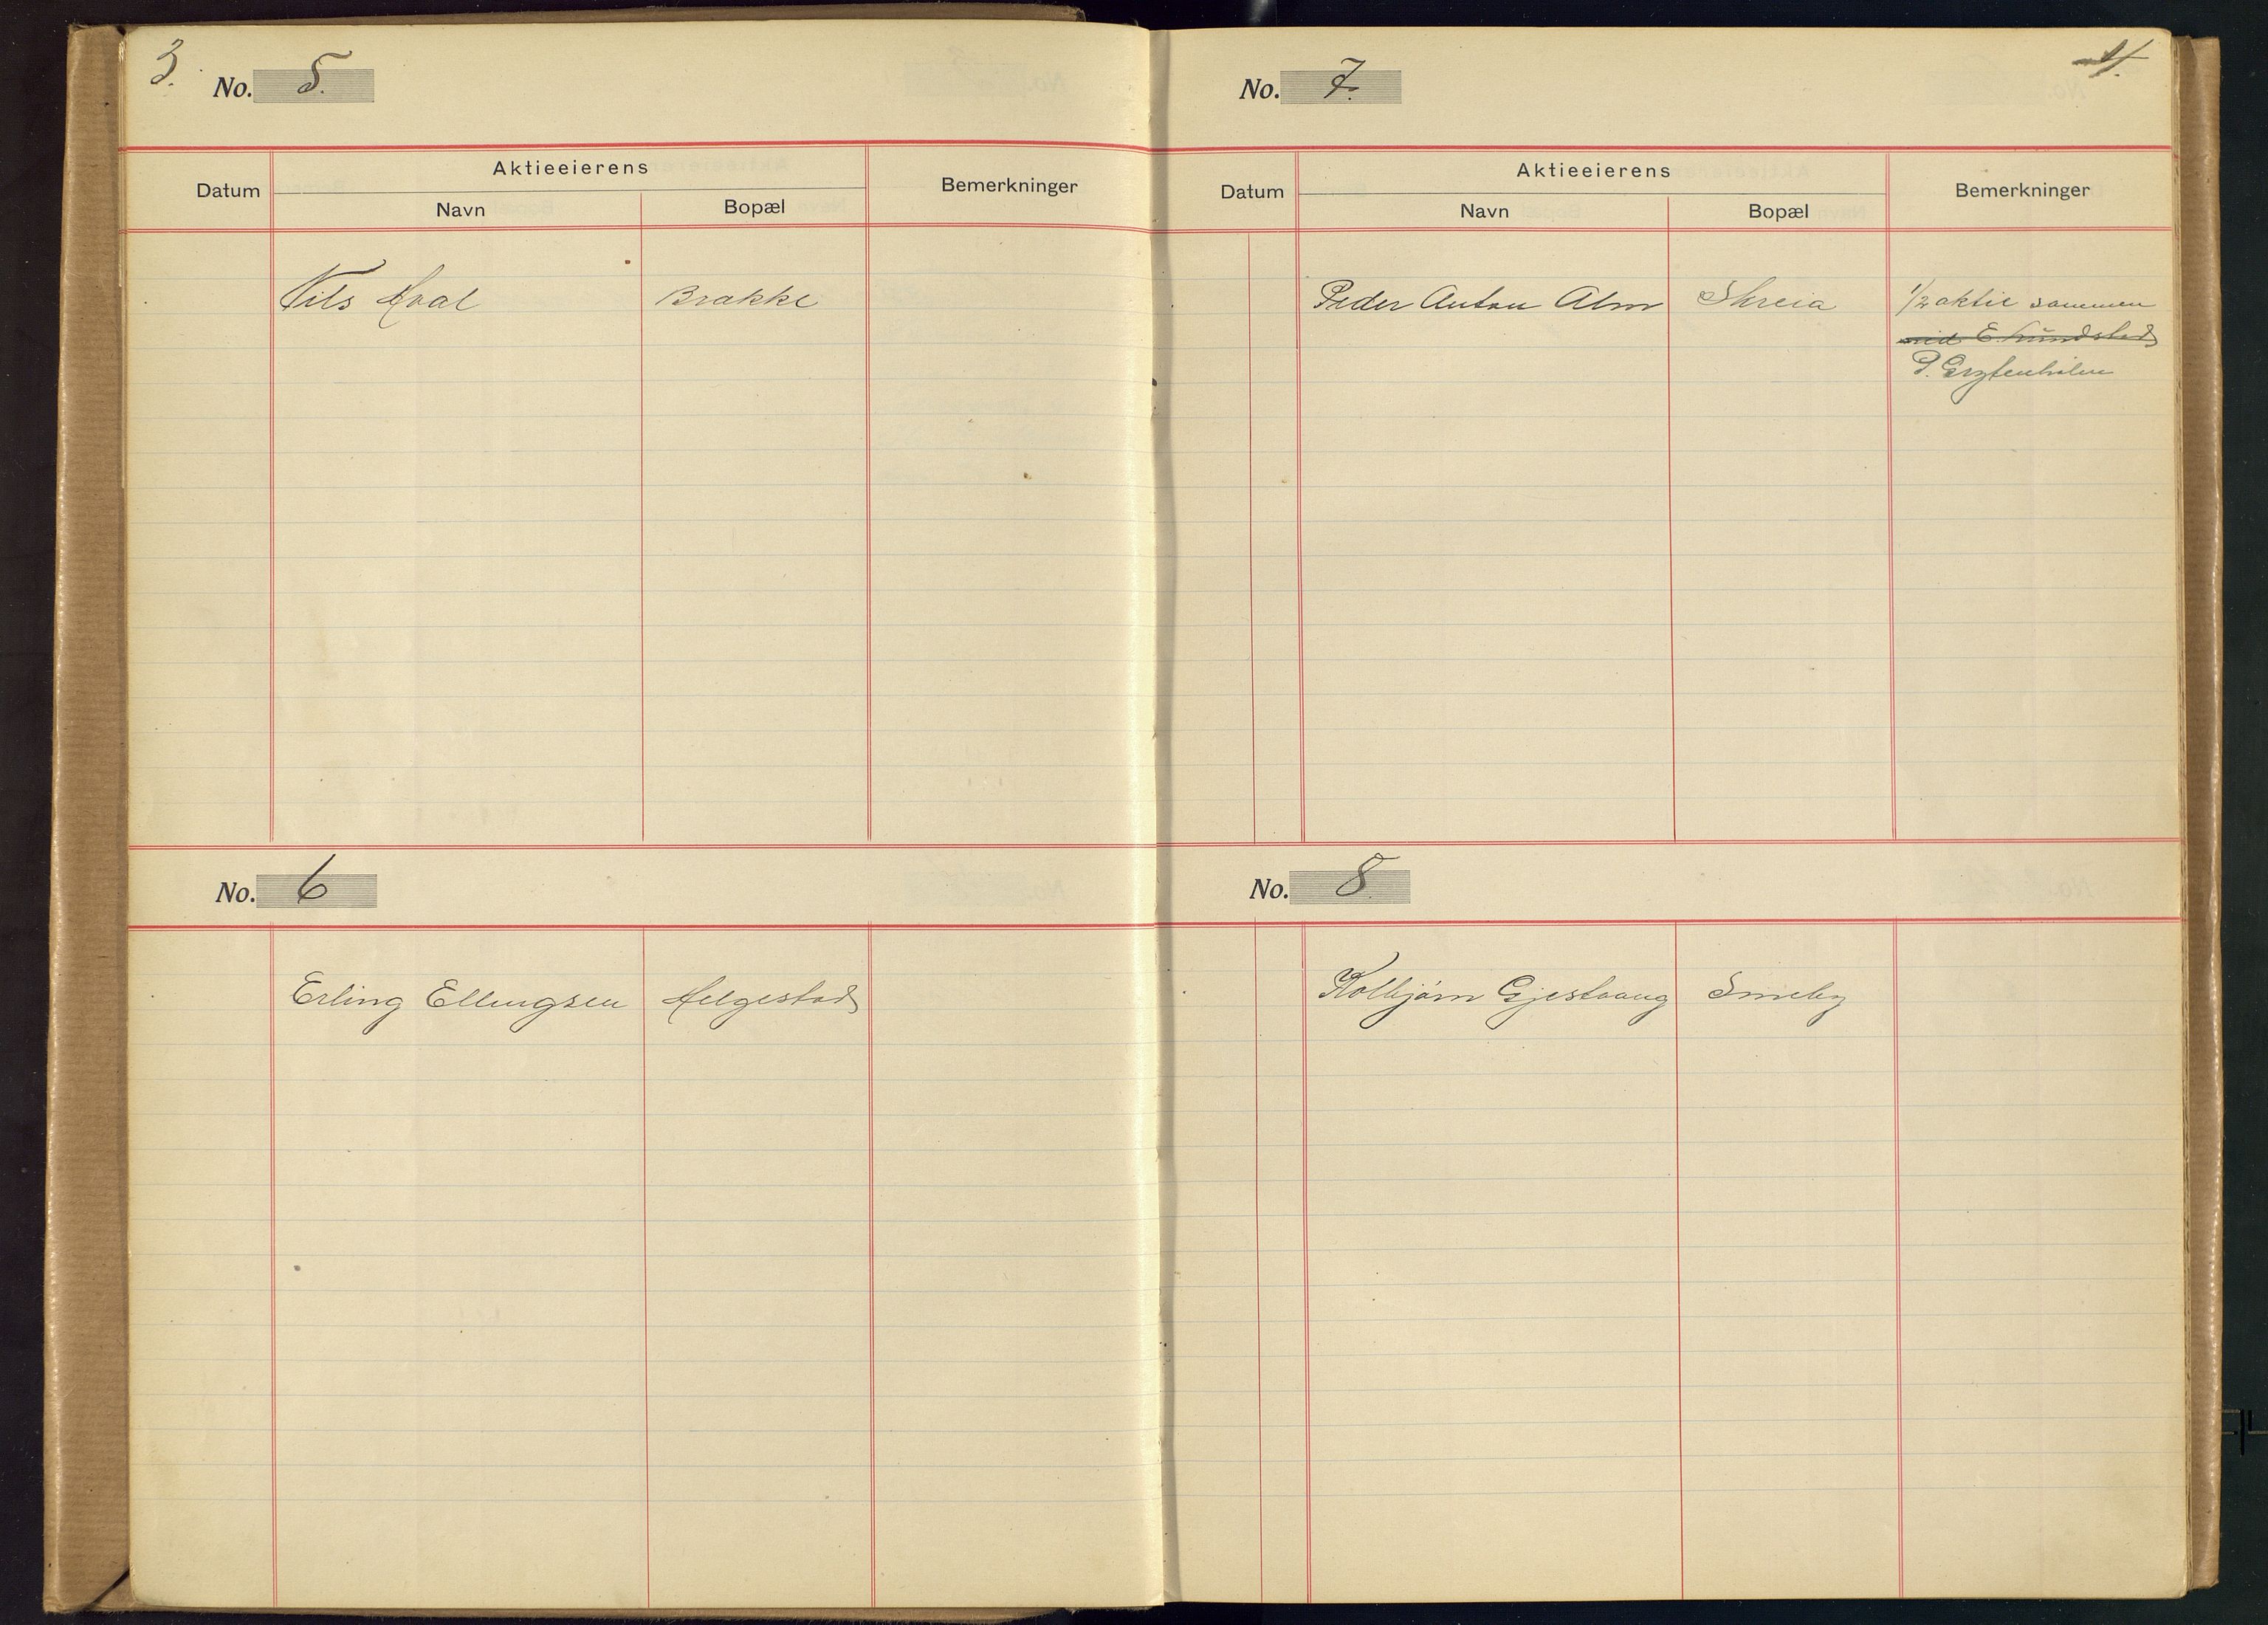 3.
No. 5.
Aktieeierens
Datum Navn Bopæl Bemerkninger
Nils Hval Brakke
No. 6
Erling Ellingsen Helgestad
4.
No. 7.
Aktieeierens
Datum Navn Bopæl Bemerkninger
Peder Anton Alm Skreia 1/2 aktie sammen
med E.
P.
No. 8
Kolbjørn Gjestvang Smeby